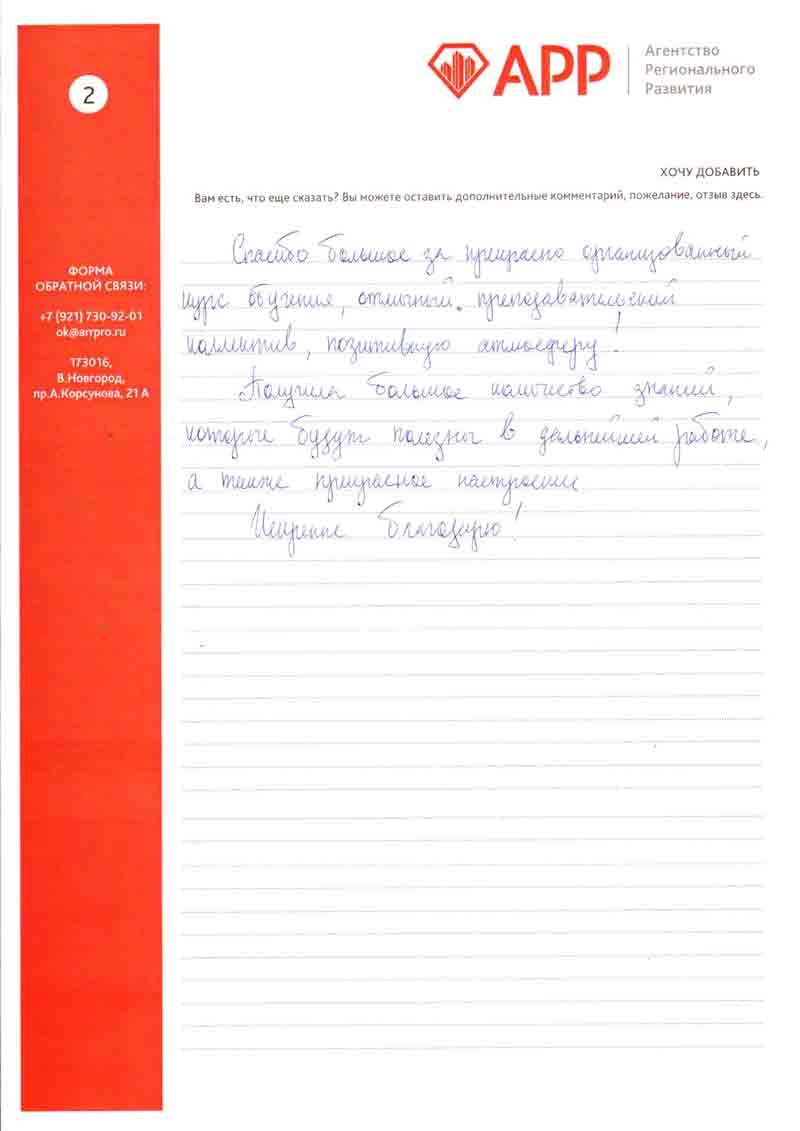 2
АРР
Агентство
Регионального
Развития
ХОЧУ ДОБАВИТЬ
Вам есть, что еще сказать? Вы можете оставить дополнительные комментарий, пожелание, отзыв здесь.
ФОРМА
ОБРАТНОЙ СВЯЗИ:
+7 (921) 730-92-01
ok@arrpro.ru
173016,
В.Новгород,
пр.А.Корсунова, 21 А
Спасибо большое за прекрасно организованный
курс обучения, отличный преподавательский
коллектив, позитивную атмосферу!
Получила большое количество знаний,
которые будут полезны в дальнейшей работе,
а также прекрасное настроение
Искренне благодарю!